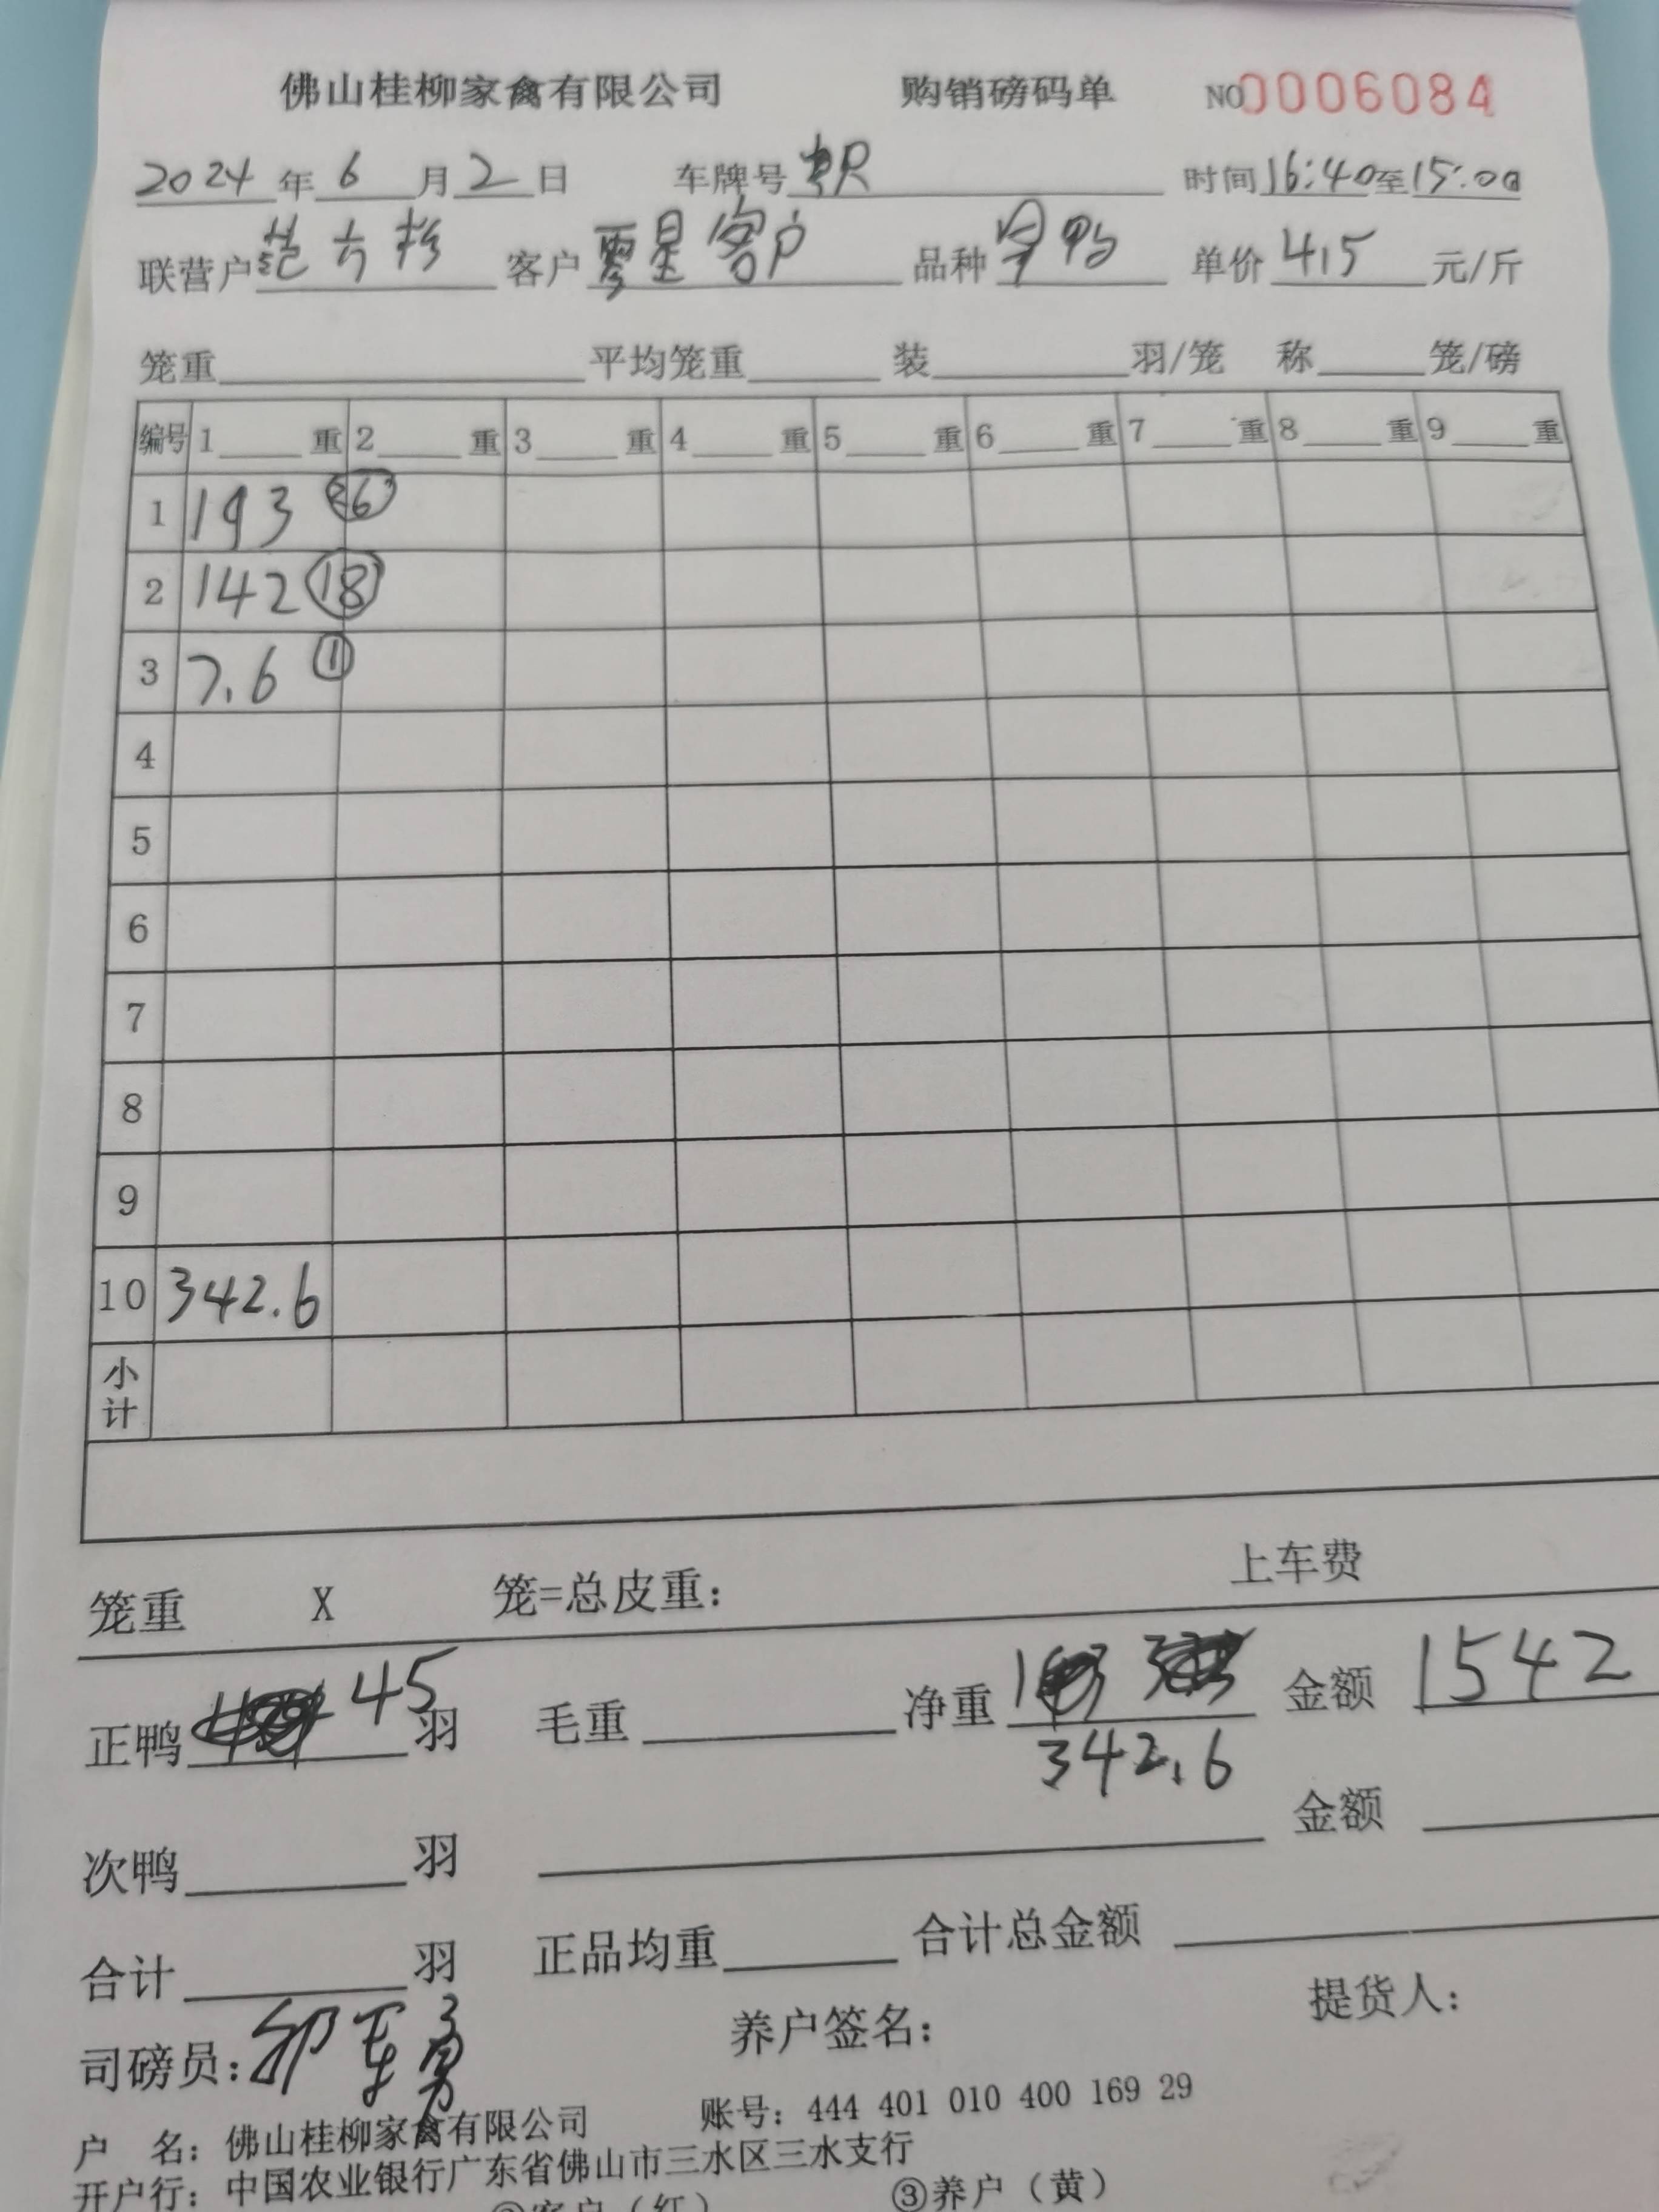 佛山桂柳家禽有限公司 购销磅码单 NO 0006084
2024年6月2日 车牌号 时间16:40至15:00
联营户 范六 客户 零星客户 品种 鸭 单价 4.5 元/斤
笼重 平均笼重 装 羽/笼 称 笼/磅
编号 1 重 2 重 3 重 4 重 5 重 6 重 7 重 8 重 9 重
1 193 26
2 142 18
3 7.6 1
4
5
6
7
8
9
10 342.6
小计
笼重 X 笼=总皮重: 上车费
正鸭 45 羽 毛重 净重 342.6 金额 1542
次鸭 羽 金额
合计 羽 正品均重 合计总金额
司磅员: 养户签名: 提货人:
户 名: 佛山桂柳家禽有限公司 账号: 444 401 010 400 169 29
开户行: 中国农业银行广东省佛山市三水区三水支行
客户(红) ③养户(黄)